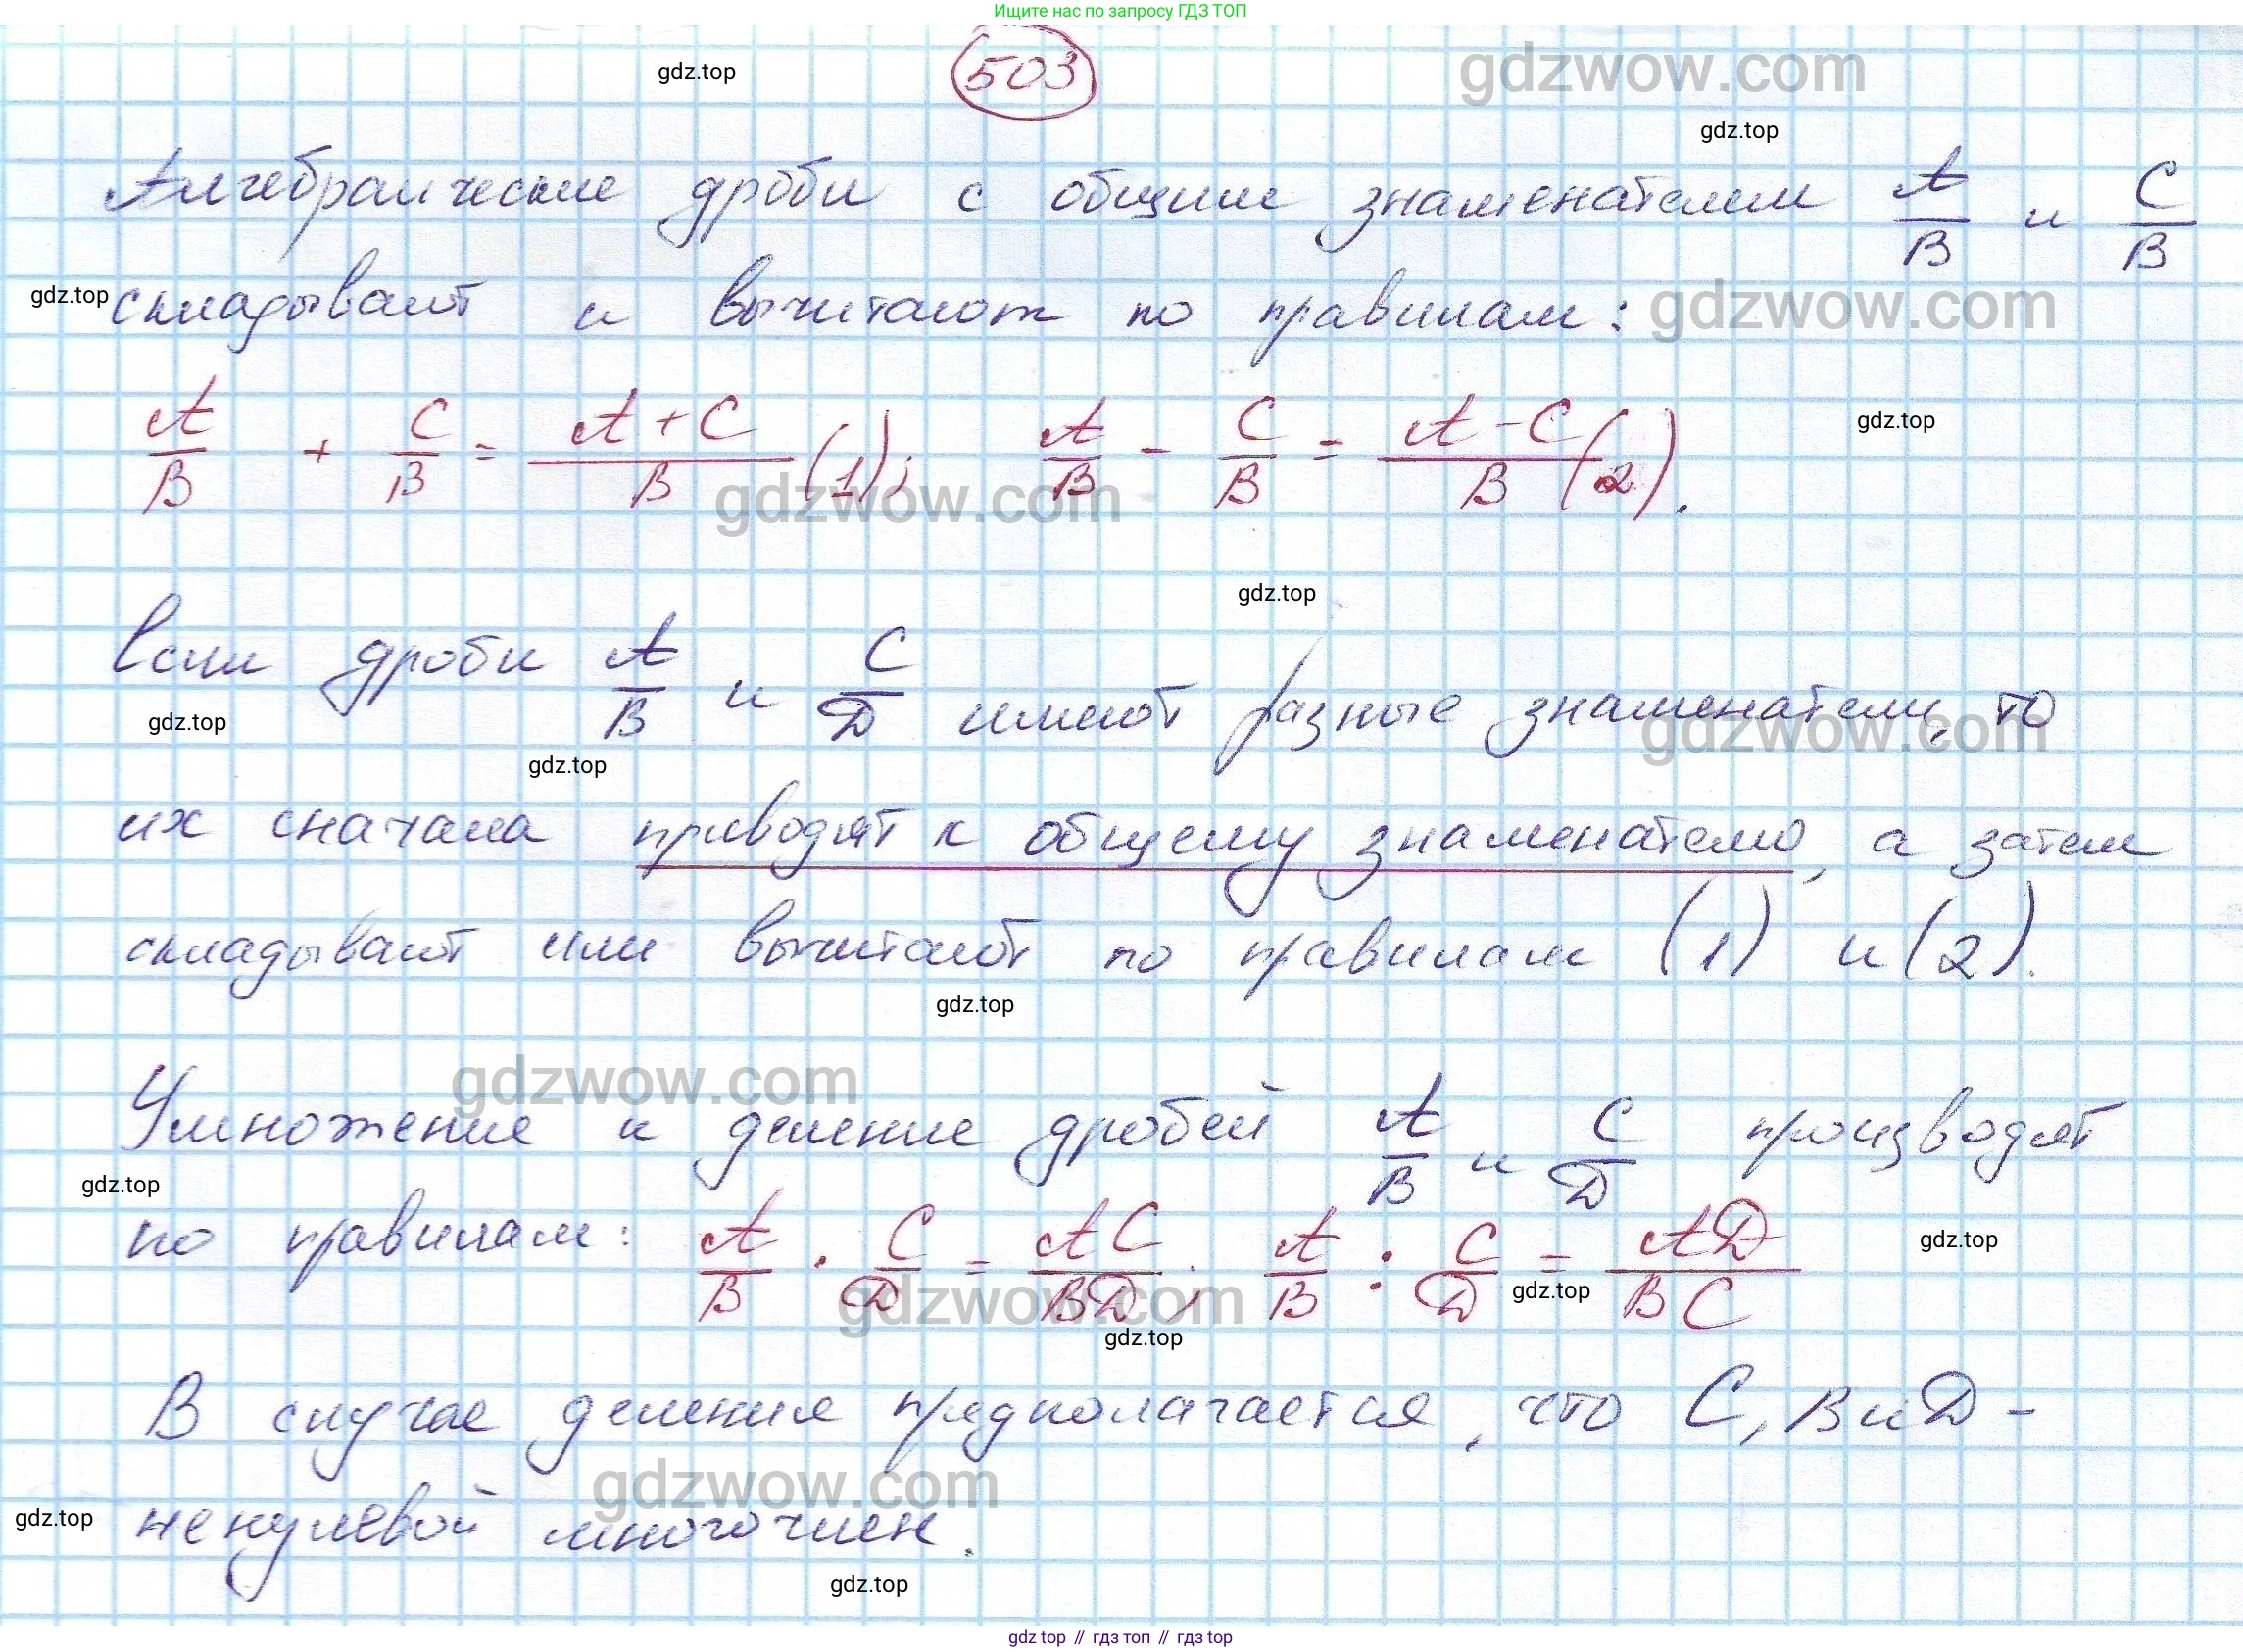 Ищите нас по запросу ГДЗ ТОП
503
gdz.top
gdzwow.com
gdz.top
Алгебраические дроби с общим знаменателем A/B и C/B
gdz.top
складывают и вычитают по правилам:
gdzwow.com
A/B + C/B = A+C/B (1); A/B - C/B = A-C/B (2).
gdz.top
gdzwow.com
gdz.top
Если дроби A/B и C/D имеют разные знаменатели, то
gdz.top
gdzwow.com
gdz.top
их сначала приводят к общему знаменателю, а затем
складывают или вычитают по правилам (1) и (2).
gdz.top
gdzwow.com
Умножение и деление дробей A/B и C/D производят
gdz.top
по правилам: A/B · C/D = AC/BD; A/B : C/D = AD/BC
gdz.top
gdz.top
gdzwow.com
gdz.top
В случае деления предполагается, что C, B и D -
gdzwow.com
gdz.top
ненулевой многочлен.
gdz.top
gdz.top // гдз топ // гдз top